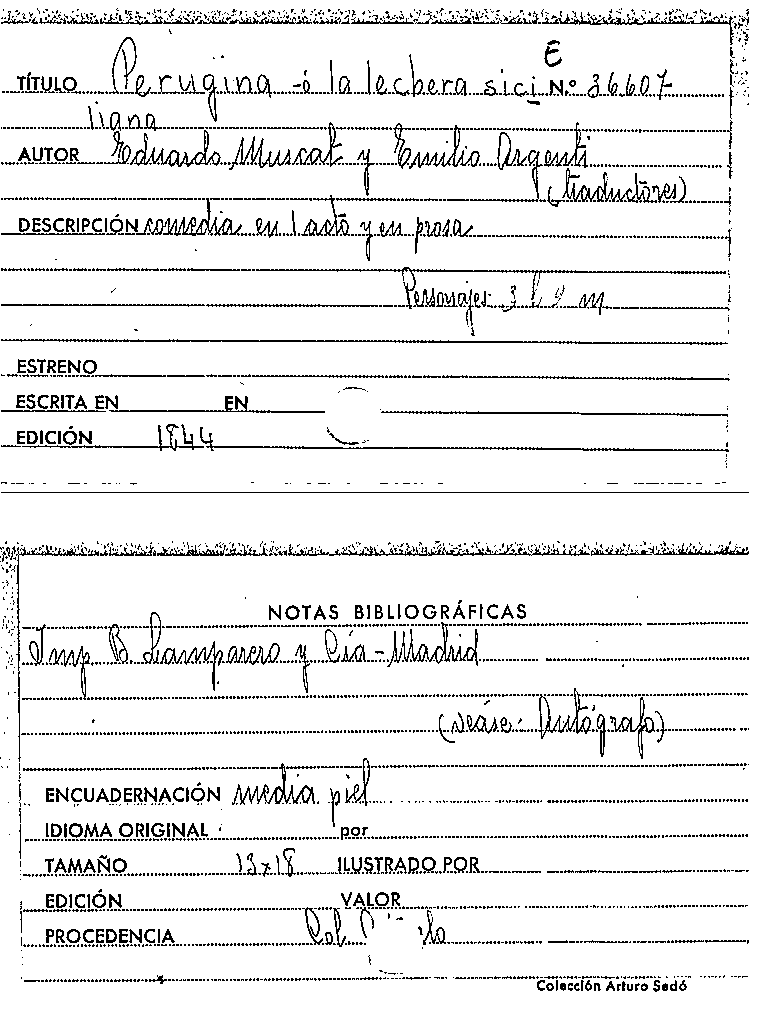 E
TÍTULO Perugina -ó la lechera sici N.º 36.607
liana
AUTOR Eduardo Muscat y Emilio Argenti
(traductores)
DESCRIPCIÓN comedia en 1 acto y en prosa
Personajes 3 m
ESTRENO
ESCRITA EN EN
EDICIÓN 1844
NOTAS BIBLIOGRÁFICAS
Imp. B. Lamparero y Cía - Madrid
(veáse: Autógrafo)
ENCUADERNACIÓN media piel
IDIOMA ORIGINAL por
TAMAÑO 13x18 ILUSTRADO POR
EDICIÓN VALOR
PROCEDENCIA Col.
Colección Arturo Sedó